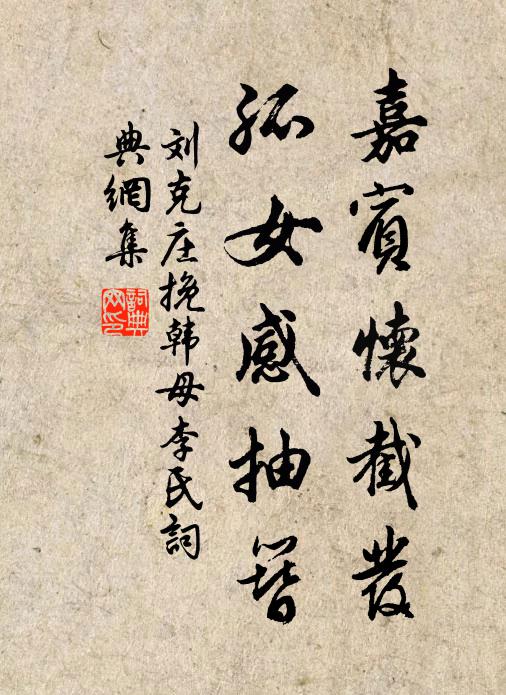 嘉賓懷截發
孤女感抽簪
刘克庄挽韩母李氏詞
典網集
詞典網印